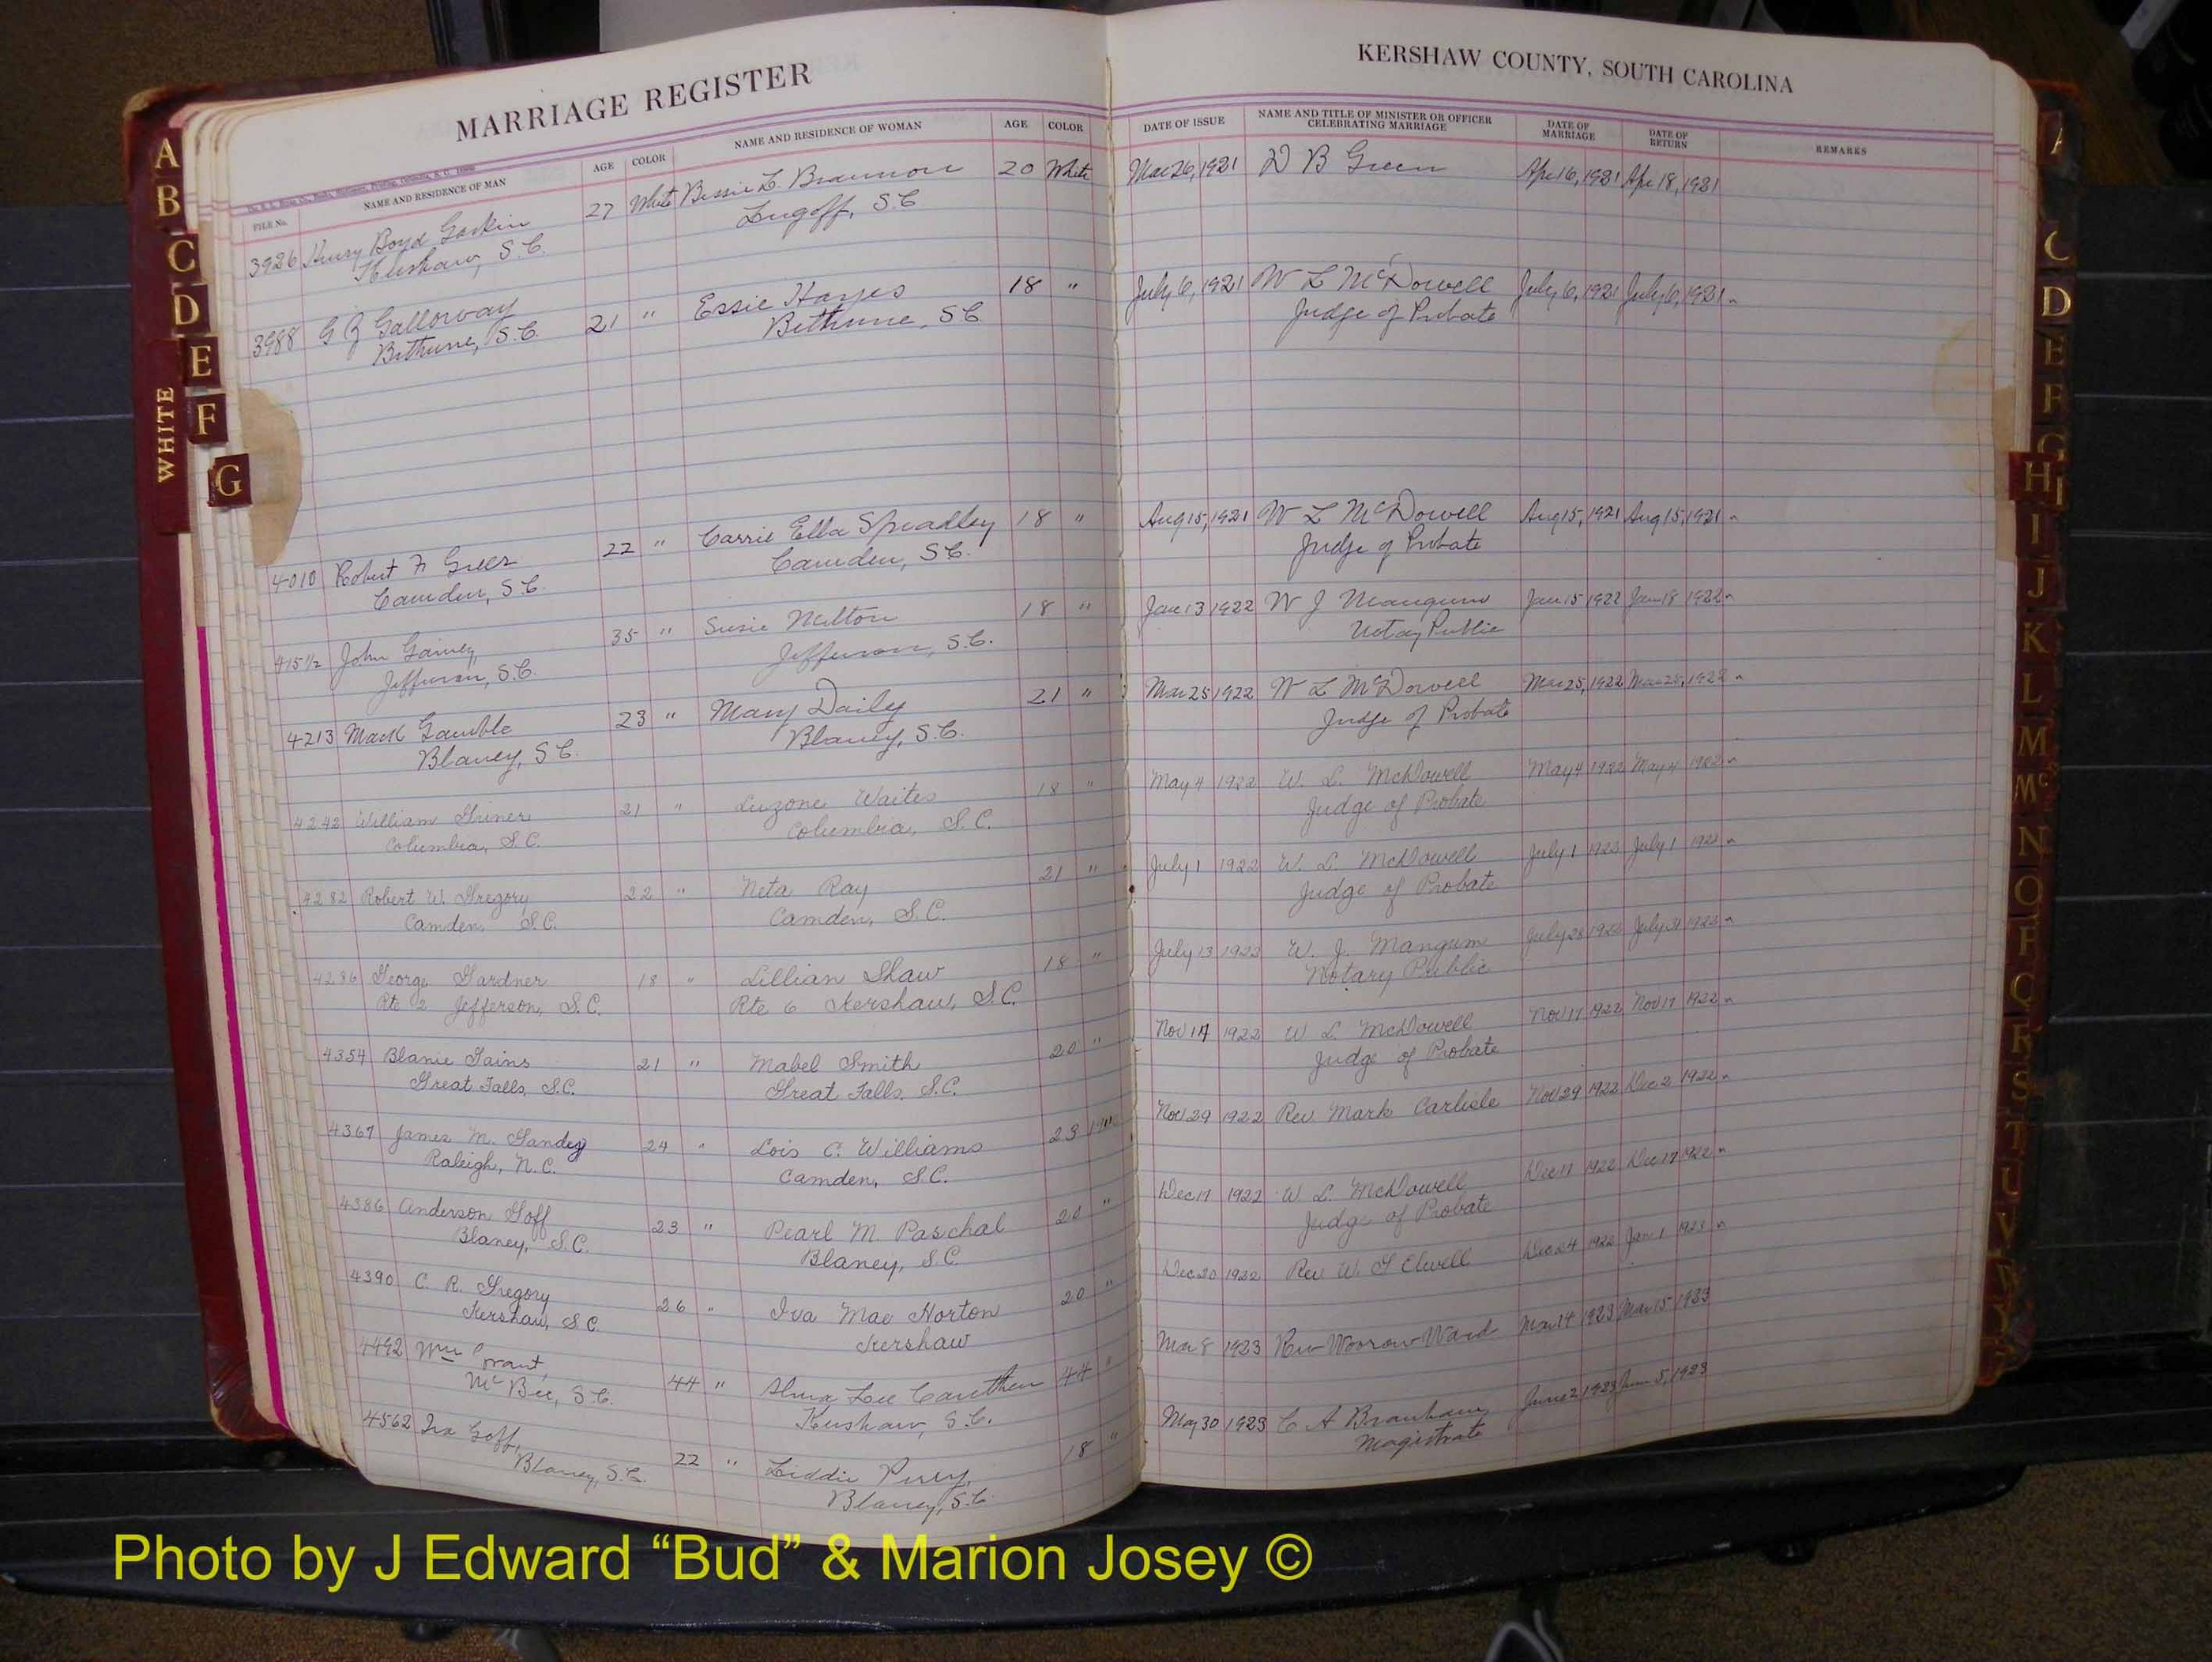 MARRIAGE REGISTER
KERSHAW COUNTY, SOUTH CAROLINA
FILE No. NAME AND RESIDENCE OF MAN AGE COLOR NAME AND RESIDENCE OF WOMAN AGE COLOR DATE OF ISSUE NAME AND TITLE OF MINISTER OR OFFICER CELEBRATING MARRIAGE DATE OF MARRIAGE DATE OF RETURN REMARKS
3926 Henry Boyd Gaskin 27 White Bessie L. Brannon 20 White Mar 26, 1921 D B Green Apr 16, 1921 Apr 18, 1921
Kershaw, S.C. Lugoff, S.C
3988 G Z Galloway 21 " Essie Hayes 18 " July 6, 1921 W L McDowell July 6, 1921 July 6, 1921
Bethune, S.C. Bethune, S.C Judge of Probate
4010 Robert F Greer 22 " Carrie Ella Spradley 18 " Aug 15, 1921 W L McDowell Aug 15, 1921 Aug 15, 1921
Camden, S.C. Camden, S.C. Judge of Probate
415 1/2 John Gainey 35 " Susie Melton 18 " Jan 13 1922 W J Mangum Jan 15 1922 Jan 18 1922
Jefferson, S.C. Jefferson, S.C. Notary Public
4213 Mack Gamble 23 " Mary Daily 21 " Mar 25 1922 W L McDowell Mar 25, 1922 Mar 25, 1922
Blaney, S.C. Blaney, S.C. Judge of Probate
4242 William Griner 21 " Luzone Waites 18 " May 4 1922 W. L. McDowell May 4 1922 May 4 1922
Columbia, S.C. Columbia, S.C. Judge of Probate
4282 Robert W. Gregory 22 " Neta Ray 21 " July 1 1922 W. L. McDowell July 1 July 1
Camden, S.C. Camden, S.C. Judge of Probate
4286 George Gardner 18 " Lillian Shaw 18 " July 13 W. J. Mangum July
Rte 2 Jefferson, S.C. Rte 6 Kershaw, S.C. Notary Public
4354 Blanie Gains 21 " Mabel Smith 20 " Nov 17 1922 W. L. McDowell Nov 17 1922 Nov 17 1922
Great Falls, S.C. Great Falls, S.C. Judge of Probate
4367 James M. Gandy 24 " Lois C. Williams 23 " Nov 29 1922 Rev Mark Carlisle Nov 29 1922 Dec 2 1922
Raleigh, N.C. Camden, S.C.
4386 Anderson Goff 23 " Pearl M. Paschal 20 " Dec 17 1922 W. L. McDowell Dec 17 1922 Dec 17 1922
Blaney, S.C. Blaney, S.C Judge of Probate
4390 C. R. Gregory 26 " Iva Mae Horton 20 " Dec 20 1922 Rev W. G Elwell Dec 24 1922 Jan 1 1923
Kershaw, S.C. Kershaw
4492 Wm Grant, 44 " Alma Lee Cauthen 44 " Mar 8 1923 Rev Ward Mar 14 1923 Mar 15 1923
McBee, S.C. Kershaw, S.C.
4562 Ira Goff, 22 " Liddie Perry, 18 " May 30 1923 C A Branham June 2 1923 June 5, 1923
Blaney, S.C. Blaney, S.C. Magistrate
WHITE
A
B
C
D
E
F
G
C
D
E
F
G
H
I
J
K
L
M
Mc
N
O
P
Q
R
S
T
U
V
W
Y
Photo by J Edward “Bud” & Marion Josey ©